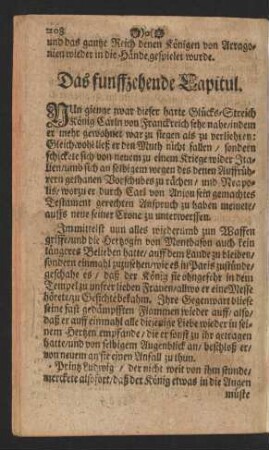 208 )o(
und das gantze Reich denen Königen von Arrago-
nien wieder in die Hände gespielet wurde.
Das funffzehende Capitul.
NUn gienge zwar dieser harte Glücks-Streich
König Carln von Franckreich sehr nahe/indem
er mehr gewohnet war zu siegen als zu verliehren:
Gleichwohl ließ er den Muth nicht fallen / sondern
schickete sich von neuem zu einem Kriege wider Ita-
lien/und sich an selbigem wegen des denen Auffrüh-
rern gethanen Vorschubes zu rächen / und Neapo-
lis/ worzu er durch Carl von Anjou sein gemachtes
Testament gerechten Anspruch zu haben meinete/
auffs neue seiner Crone zu unterwerffen.
Immittelst nun alles wiederumb zun Waffen
griffe/und die Hertzogin von Montbason auch kein
längeres Belieben hatte/ auff dem Lande zu bleiben/
sondern einmahl zuzusehen/wie es in Paris zustünde/
geschahe es / daß der König sie ohngefehr in dem
Tempel zu unser lieben Frauen/allwo er eine Messe
hörete/zu Gesichte bekahm. Ihre Gegenwart bliese
seine fast gedämpfften Flammen wieder auff/ also/
daß er auff einmahl alle diejenige Liebe wieder in sei-
nem Hertzen empfande/ die er sonst zu ihr getragen
hatte/und von selbigem Augenblick an/ beschloß er/
von neuem an sie einen Anfall zu thun.
Printz Ludwig / der nicht weit von ihm stunde/
merckete alsofort/ daß der König etwas in die Augen
müste